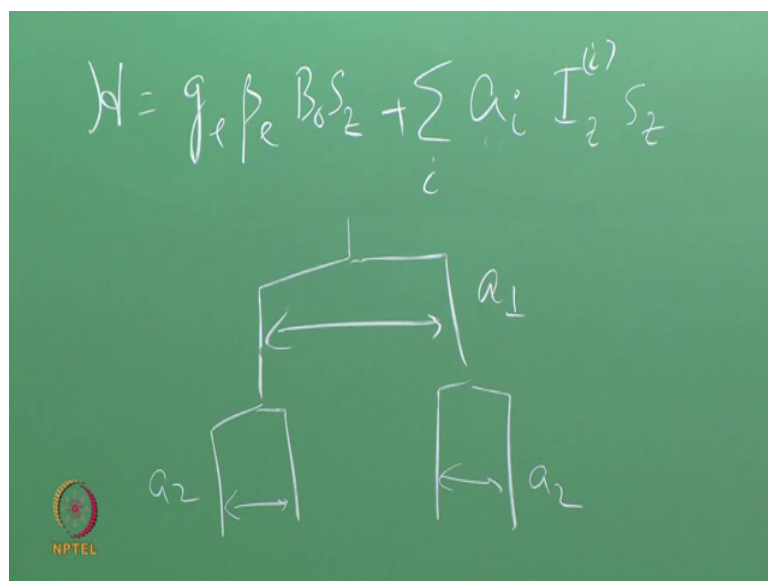 H = g_e β_e B_0 S_z + ∑_i a_i I_z^(i) S_z
a_1
a_2
a_2
NPTEL